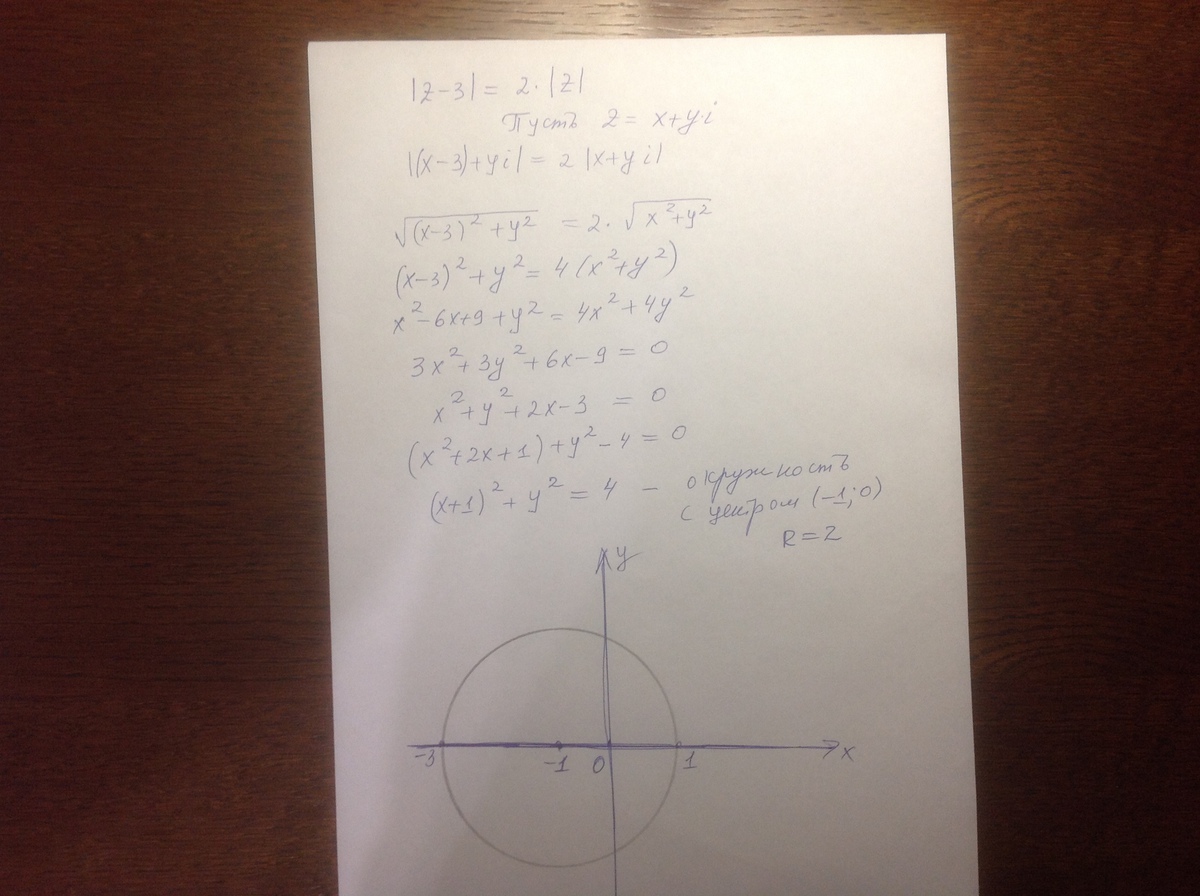 |z-3| = 2·|z|
Пусть z = x+y·i
|(x-3)+yi| = 2|x+yi|
√((x-3)²+y²) = 2·√(x²+y²)
(x-3)²+y² = 4(x²+y²)
x²-6x+9+y² = 4x²+4y²
3x²+3y²+6x-9 = 0
x²+y²+2x-3 = 0
(x²+2x+1)+y²-4 = 0
(x+1)²+y² = 4 - окружность
с центром (-1;0)
R=2
y
-3 -1 0 1 x